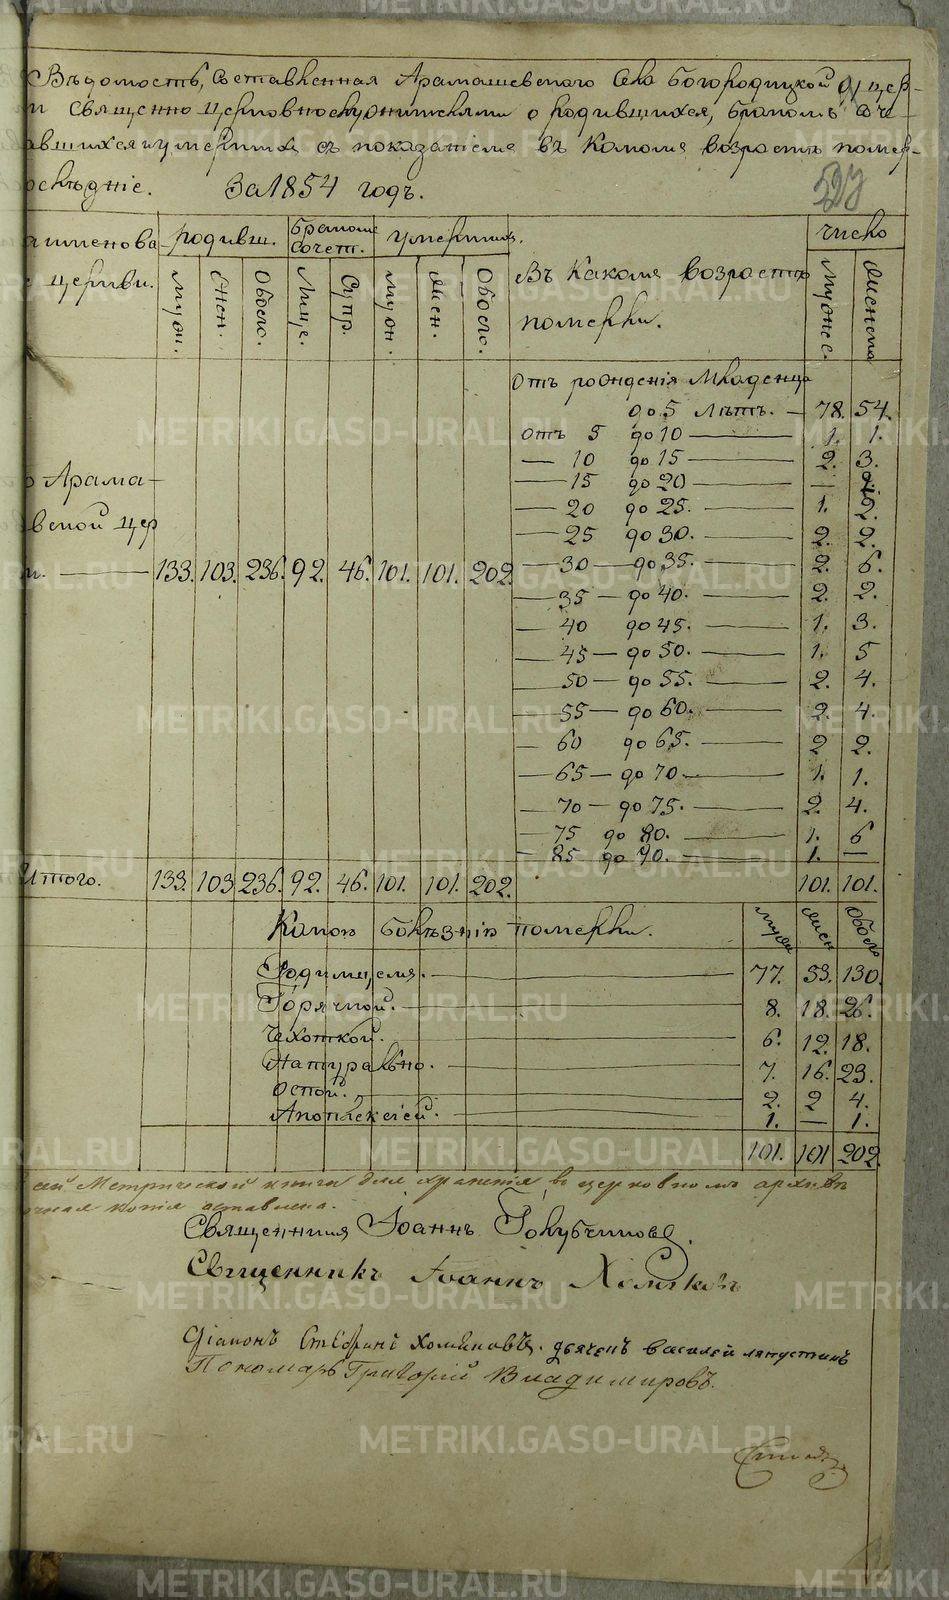 Вѣдомость, Составленная Арамашевскаго Села Богородицкой Цер-
и священно церковнослужителями о родившихся, Бракомъ Соче-
авшихся и умершихъ съ показаніемъ въ Какомъ возрастѣ помер-
ослѣдніе. За 1854 годъ.
аименова родивш. Бракомъ Сочет. умершихъ. число
е церкви. муж. Жен. Обоего. Лице. Супр. муж. жен. Обоего. Въ Какомъ возрастѣ померли. Мужес. Женска
Отъ рожденія Младенца
до 5 лѣтъ. — 78. 54.
отъ 5 до 10 — 1. 1.
— 10 до 15 — 2. 3.
— 15 до 20 — —
— 20 до 25. — 1. 2.
— 25 до 30. — 2. 2.
о Арама-
вской цер
и. — 133. 103. 236. 92. 46. 101. 101. 202. — 30 — до 35. — 2. 6.
— 35 — до 40. — 2. 2.
— 40 до 45. — 1. 3.
— 45 — до 50. — 1. 5
— 50 — до 55. — 2. 4.
— 55 — до 60. — 2. 4.
— 60 до 65. — 2 2.
— 65 — до 70 — 1. 1.
— 70 — до 75. — 2. 4.
— 75 до 80. — 1. 6
— 85 до 90. — 1. —
Итого. 133. 103 236. 92. 46. 101. 101. 202. 101. 101.
Какою болѣзнію померли. муж жен Обоего
Родимцемъ. — 77. 53. 130.
Горячкой. — 8. 18. 26.
Чехоткой. — 6. 12. 18.
Натурально. — 7. 16. 23.
Оспой. — 2. 2 4.
Апоплексіей. — 1. — 1.
101. 101 202.
сей Метрической книги для храненія въ церковномъ архивѣ
очная копія оставлена.
Священникъ Іоаннъ Голубчиковъ.
Священникъ Іоаннъ Хомяковъ
Діаконъ Стефанъ Хомяковъ. дьячекъ василей ляпустинъ
Пономарь Григорій Владимировъ.
METRIKI.GASO-URAL.RU